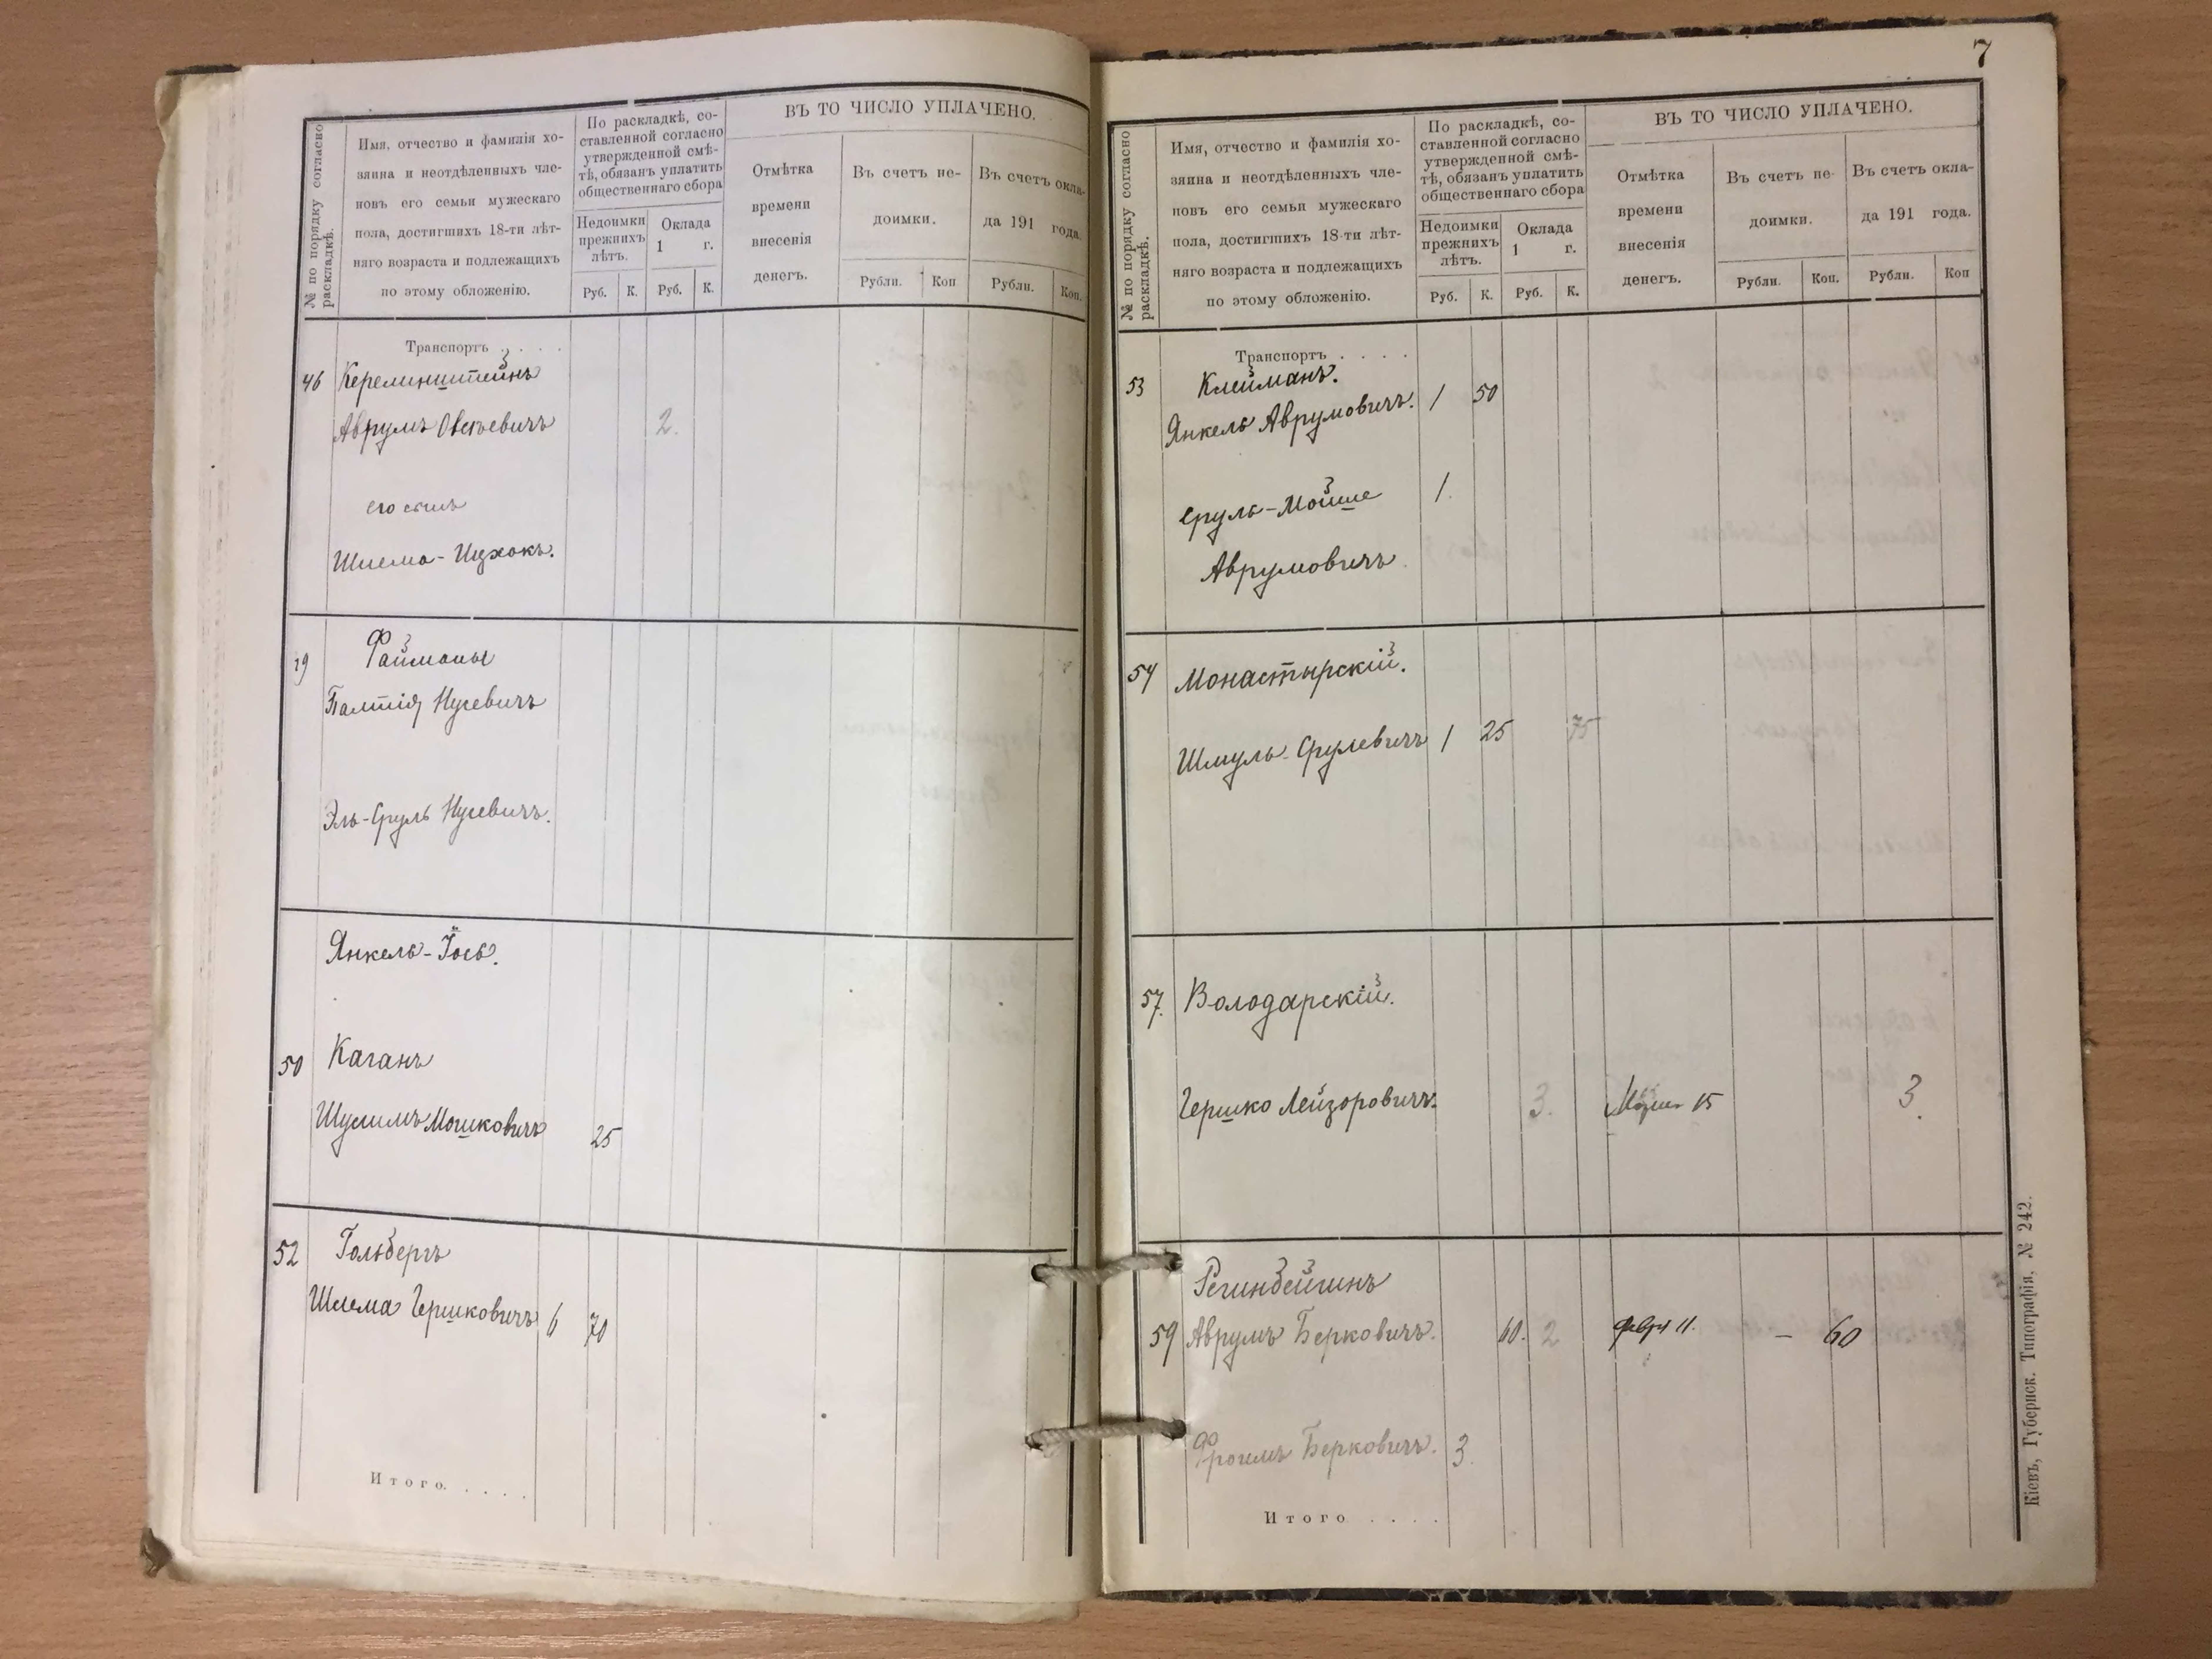 № по порядку согласно раскладкѣ.
Имя, отчество и фамилія хо-
зяина и неотдѣленныхъ чле-
новъ его семьи мужескаго
пола, достигшихъ 18-ти лѣт-
няго возраста и подлежащихъ
по этому обложенію.
По раскладкѣ, со-
ставленной согласно
утвержденной смѣ-
тѣ, обязанъ уплатить
общественнаго сбора
Недоимки прежнихъ лѣтъ.
Оклада 1 г.
Руб. К. Руб. К.
ВЪ ТО ЧИСЛО УПЛАЧЕНО.
Отмѣтка
времени
внесенія
денегъ.
Въ счетъ не-
доимки.
Въ счетъ окла-
да 191 года.
Рубли. Коп Рубли. Коп.
Транспортъ . . . .
46 Керелинштейнъ
Аврумъ Овсѣевичъ 2.
его сынъ
Шлема-Ицхокъ.
19 Файманы
Палтія Нусевичъ
Эль-Сруль Нусевичъ.
Янкель-Іось.
50 Каганъ
Шулимъ Мошковичъ 25
52 Гольбергъ
Шлема Гершковичъ 6 70
Итого. . . . .
7
№ по порядку согласно раскладкѣ.
Имя, отчество и фамилія хо-
зяина и неотдѣленныхъ чле-
новъ его семьи мужескаго
пола, достигшихъ 18-ти лѣт-
няго возраста и подлежащихъ
по этому обложенію.
По раскладкѣ, со-
ставленной согласно
утвержденной смѣ-
тѣ, обязанъ уплатить
общественнаго сбора
Недоимки прежнихъ лѣтъ.
Оклада 1 г.
Руб. К. Руб. К.
ВЪ ТО ЧИСЛО УПЛАЧЕНО.
Отмѣтка
времени
внесенія
денегъ.
Въ счетъ не-
доимки.
Въ счетъ окла-
да 191 года.
Рубли. Коп. Рубли. Коп
Транспортъ . . . .
53 Клейманъ.
Янкель Аврумовичъ. 1 50
Сруль-Мойше 1.
Аврумовичъ
54 Монастырскій.
Шмуль Срулевичъ 1 25 75
57. Володарскій.
Гершко Лейзоровичъ. 3. 15 3.
Регинбейгинъ
59 Аврумъ Берковичъ. 60. 2 февр 11. — 60
Фроимъ Берковичъ. 3.
Итого . . . .
Кіевъ, Губернск. Типографія, № 242.